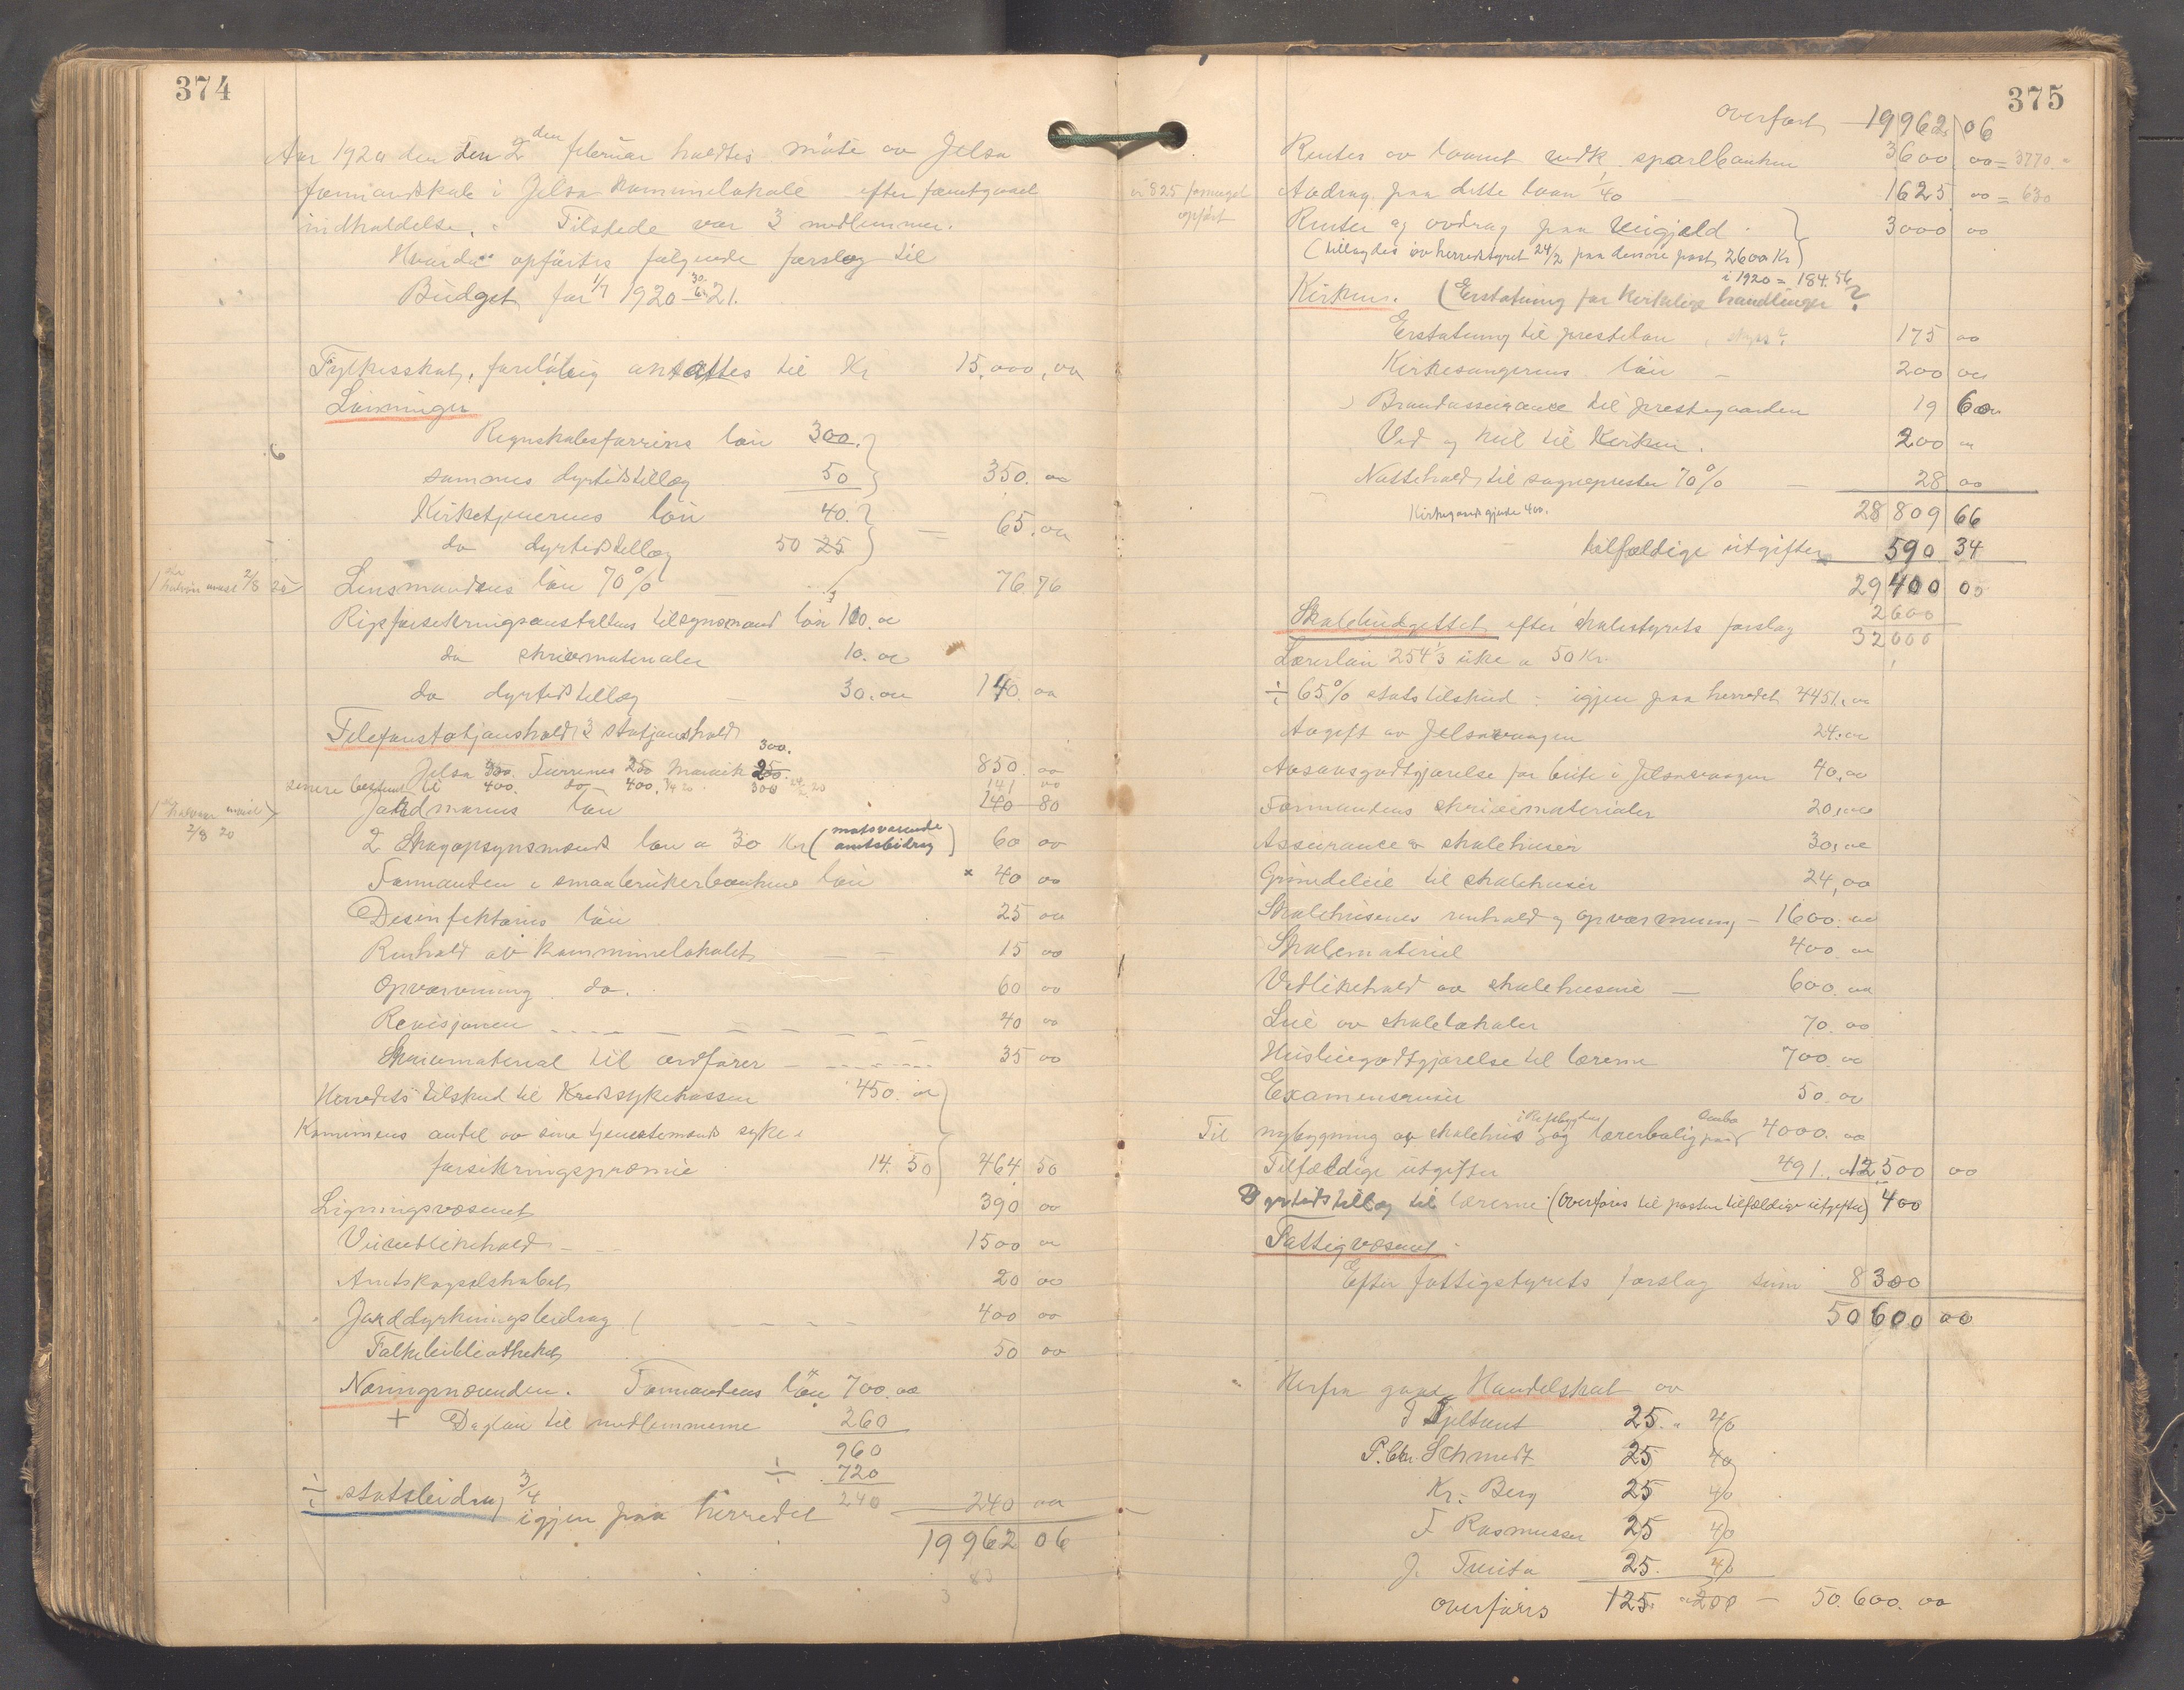 374
Aar 1920 den den 2 den februar holdtes møte av Jelsa
formandskab i Jelsa kommunelokale efter forutgaaet
indkaldelse. Tilstede var 3 medlemmer.
Hvorda opførtes følgende forslag til
Budget for 1/7 1920 - 30/6 21.
Fylkesskat, foreløbig ansættes til Kr 15.000,00
Lønninger
Regnskabsførerens løn 300.
sammes dyrtidstillæg 50 350. 00
Kirketjenerens løn 40.
do dyrtidstillæg 50 25 65. 00
Lensmandens løn 70% 76 76
Riksforsikringsanstaltens tilsynsmand løn 100. 00
do skrivematerialer 10. 00
do dyrtidstillæg 30. 00 140. 00
Telefonstasjonshold 3 stasjonshold
300.
Jelsa 300. Foreness 250 Marvik 250. 850. 00
senere bestemt til 400. do 400. 300 141 00
Jordmorens løn 140 80
1 halvaar 2/8 20
2 Skogopsynsmænds løn a 30 Kr (motsvarende amtsbidrag) 60 00
Formanden i smaabrukerbankens løn × 40 00
Desinfektørens løn 25 00
Renhold av kommunelokalet 15 00
Opvarmning do. 60 00
Revisjonen 40 00
Skrivematerial til ordfører 35 00
Herredets tilskud til Kredssykekassen 450. 00
Kommunens andel av sine tjenestemænds syke-
forsikringspræmie 14. 50 464 50
Ligningsvæsenet 390 00
Veivedlikehold 1500 00
Amtskogselskabet 20 00
Jorddyrkningsbidrag 400 00
Folkebibliotheket 50 00
Næringsnævnden. Formandens løn 700. 00
+ Dagløn til medlemmerne 260
960
÷ 720
÷ statsbidrag 3/4 240
igjen paa herredet 240 00
19962 06
375
overført 19962 06
Renter av laanet indk sparebanken 3600 00 = 3770
825 formeget opført
Avdrag paa dette laan 1/40 1625 00 = 630
Renter og avdrag paa Veigjeld 3000 00
(tillagdes av herredstyret 24/2 paa denne post 2600 Kr)
i 1920 = 184.56
Kirken. (Erstatning for kirkelige handlinger?
Erstatning til prestelaan 175 00
Kirkesangerens løn 200 00
Brandassurance til prestegaarden 19 60
Ved og kul til Kirken. 200 00
Nattehold til sogneprester 70% 28 00
Kirkegaards gjerde 400. 28 809 66
tilfældige utgifter 590 34
29 400 00
2600
32000
Skolebudgettet efter skolestyrets forslag
Lærerløn 254 1/3 uke a 50 Kr.
÷ 65% statstilskud : igjen paa herredet 4451,00
Avgift av Jelsavaagen 24. 00
Avsavnsgodtgjørelse for beite i Jelsavaagen 40,00
Formandens skrivematerialer 20,00
Assurance av skolehuser 30,00
Grundeleie til skolehuser 24,00
Skolehusenes renhold og opvarmning 1600. 00
Skolemateriel 400 00
Vedlikehold av skolehusene 600. 00
Leie av skolelokaler 70. 00
Husleiegodtgjørelse til lærerne 700. 00
Examensreiser 50. 00
Til nybygning av skolehus og lærerbolig paa Ombo 4000. 00
Tilfældige utgifter 491. 12,500 00
Dyrtidstillæg til lærerne (overføres til posten tilfældige utgifter) 400
Fattigvæsenet
Efter fattigstyrets forslag sum 8300
50 600 00
Herfra gaar Handelskat av
T Hjeltnes 25. 40
P. Chr. Schmidt 25 40
Kr. Berg 25 40
T Rasmussen 25 40
J. Tveita 25. 40
overføres 125. 200 - 50.600. 00